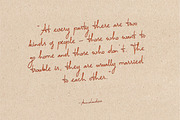 "At every party there are two
kinds of people – those who want to
go home and those who don't. The
trouble is, they are usually married
to each other."